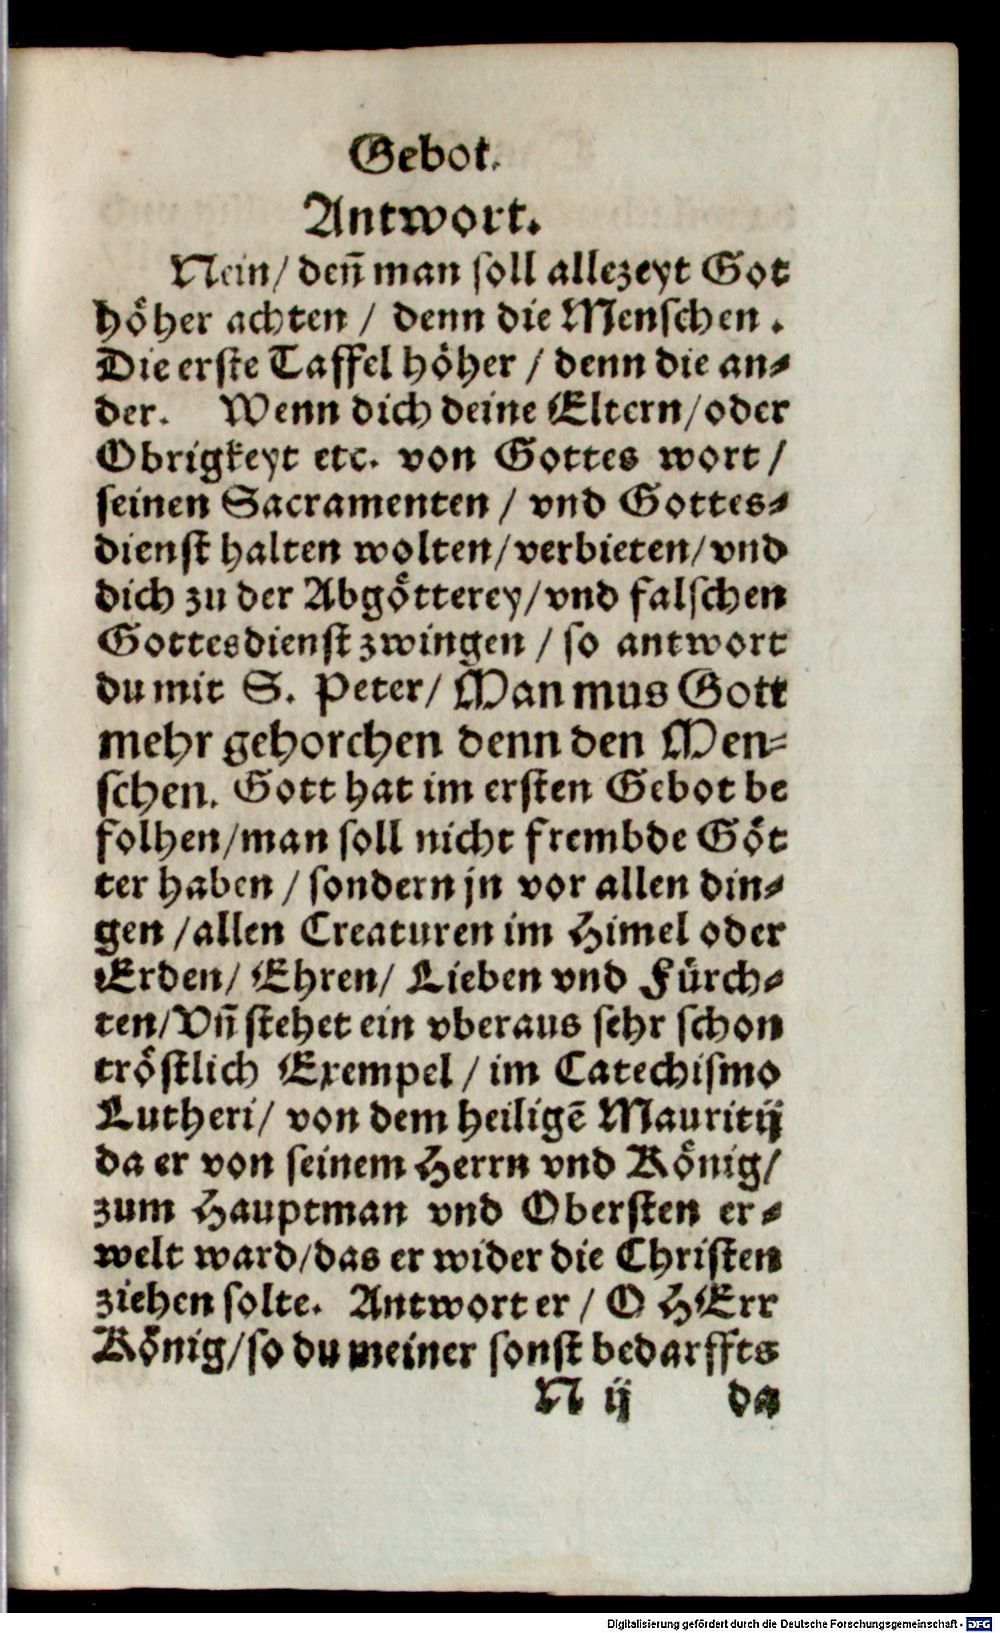 Gebot.
Antwort.
Nein/ deñ man soll allezeyt Got
höher achten / denn die Menschen.
Die erste Taffel höher / denn die an-
der. Wenn dich deine Eltern/oder
Obrigkeyt etc. von Gottes wort /
seinen Sacramenten / vnd Gottes-
dienst halten wolten/verbieten/vnd
dich zu der Abgötterey/vnd falschen
Gottesdienst zwingen / so antwort
du mit S. Peter/ Man mus Gott
mehr gehorchen denn den Men-
schen. Gott hat im ersten Gebot be
folhen/man soll nicht frembde Göt
ter haben / sondern jn vor allen din-
gen /allen Creaturen im Himel oder
Erden/ Ehren/ Lieben vnd Fürch-
ten/Vñ stehet ein vberaus sehr schon
tröstlich Exempel / im Catechismo
Lutheri/ von dem heiligē Mauritij
da er von seinem Herrn vnd König/
zum Hauptman vnd Obersten er-
welt ward/das er wider die Christen
ziehen solte. Antwort er / O HErr
König/so du meiner sonst bedarffts
N ij da
Digitalisierung gefördert durch die Deutsche Forschungsgemeinschaft - DFG